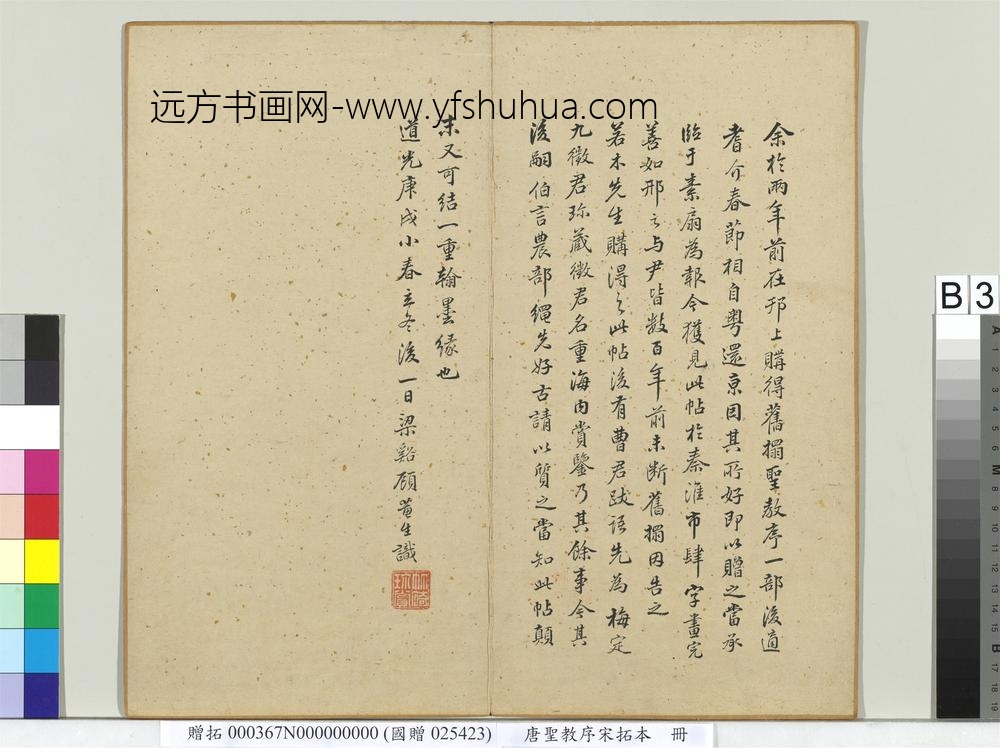 远方书画网-www.yfshuhua.com
余於兩年前在邗上購得舊搨聖教序一部後適
耆介春節相自粵還京因其所好即以贈之當承
臨于素扇為報今獲見此帖於秦淮市肆字畫完
善如邢之与尹皆數百年前未断舊搨因告之
若木先生購得之此帖後有曹君跋語先為梅定
九徵君珎藏徵君名重海内賞鑒乃其餘事今其
後嗣伯言農部繩先好古請以質之當知此帖顛
末又可結一重翰墨緣也
道光庚戌小春立冬後一日梁谿顧蓳生識
B 3
贈拓 000367N000000000 (國贈 025423)
唐聖教序宋拓本 冊